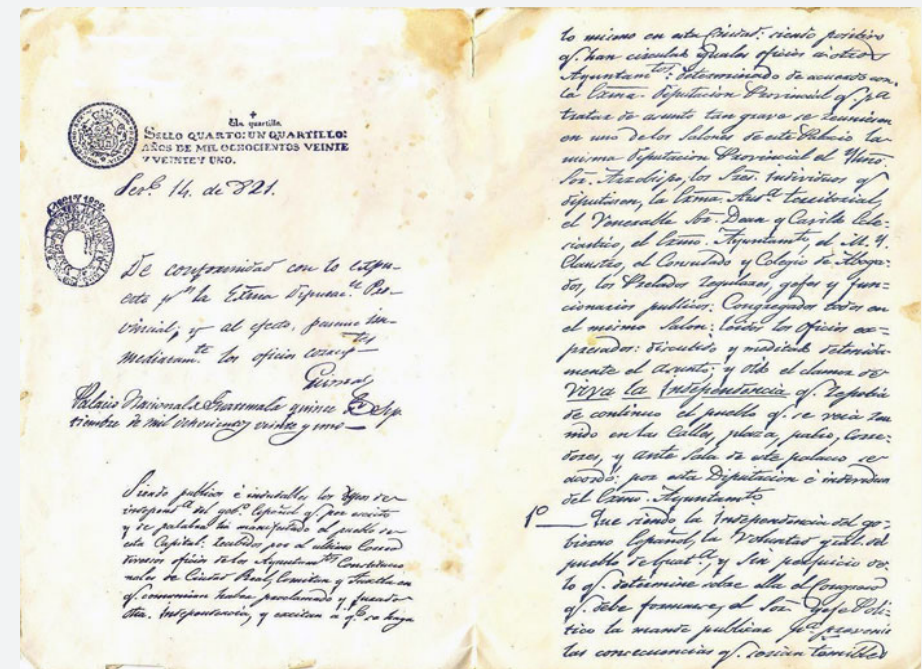 Un quartillo.
SELLO QUARTO: UN QUARTILLO:
AÑOS DE MIL OCHOCIENTOS VEINTE
Y VEINTE Y UNO.
14. de 821.
De conformidad con lo expu-
esto pr. la Exma Diputac.n Pro-
vincial; y al efecto, pasense in-
mediatamte. los oficios
Palacio Nacional de Guatemala quince de Sep-
tiembre de mil ochocientos veinte y uno
Siendo publicos é indudables los deseos de
independa. del gobo. Español q. por escrito
y de palabra ha manifestado el pueblo de
esta Capital: recibidos por el ultimo Correo
diversos oficios de los Ayuntamtos Constitucio-
nales de Ciudad Real, Comitan y Tuxtla en
q. comunican haber proclamado y jurado
dha. Independencia, y excitan á q. se haga
lo mismo en esta Ciudad: siendo positivo
q. han circulado iguales oficios á otros
Ayuntamtos: determinado de acuerdo con
la Exma. Diputacion Provincial q. pa
tratar de asunto tan grave se reuniesen
en uno de los Salones de este Palacio la
misma Diputacion Provincial el Illmo.
Sor. Arzobispo, los Sres. individuos q.
diputasen, la Exma. Auda. territorial,
el Venerable Sor. Dean y Cavildo Ecle-
siastico, el Exmo. Ayuntamto, el M. Y.
Claustro, el Consulado y Colegio de Aboga-
dos, los Prelados regulares, gefes y fun-
cionarios publicos: Congregados todos en
el mismo Salon: leidos los Oficios ex-
presados: discutido y meditado detenida-
mente el asunto; y oido el clamor de
Viva la Independencia q. repetia
de continuo el pueblo q. se veia reu-
nido en las Calles, plaza, patio, Corre-
dores, y ante Sala de este palacio se
acordó: por esta Diputacion é individuos
del Exmo. Ayuntamto.
1o Que siendo la Independencia del go-
bierno Español, la Voluntad gral. del
pueblo de Guata., y sin perjuicio de
lo q. determine sobre ella el Congreso
q. debe formarse, el Sor. Gefe Poli-
tico la mande publicar pa. prevenir
las consecuencias q. serian temibles